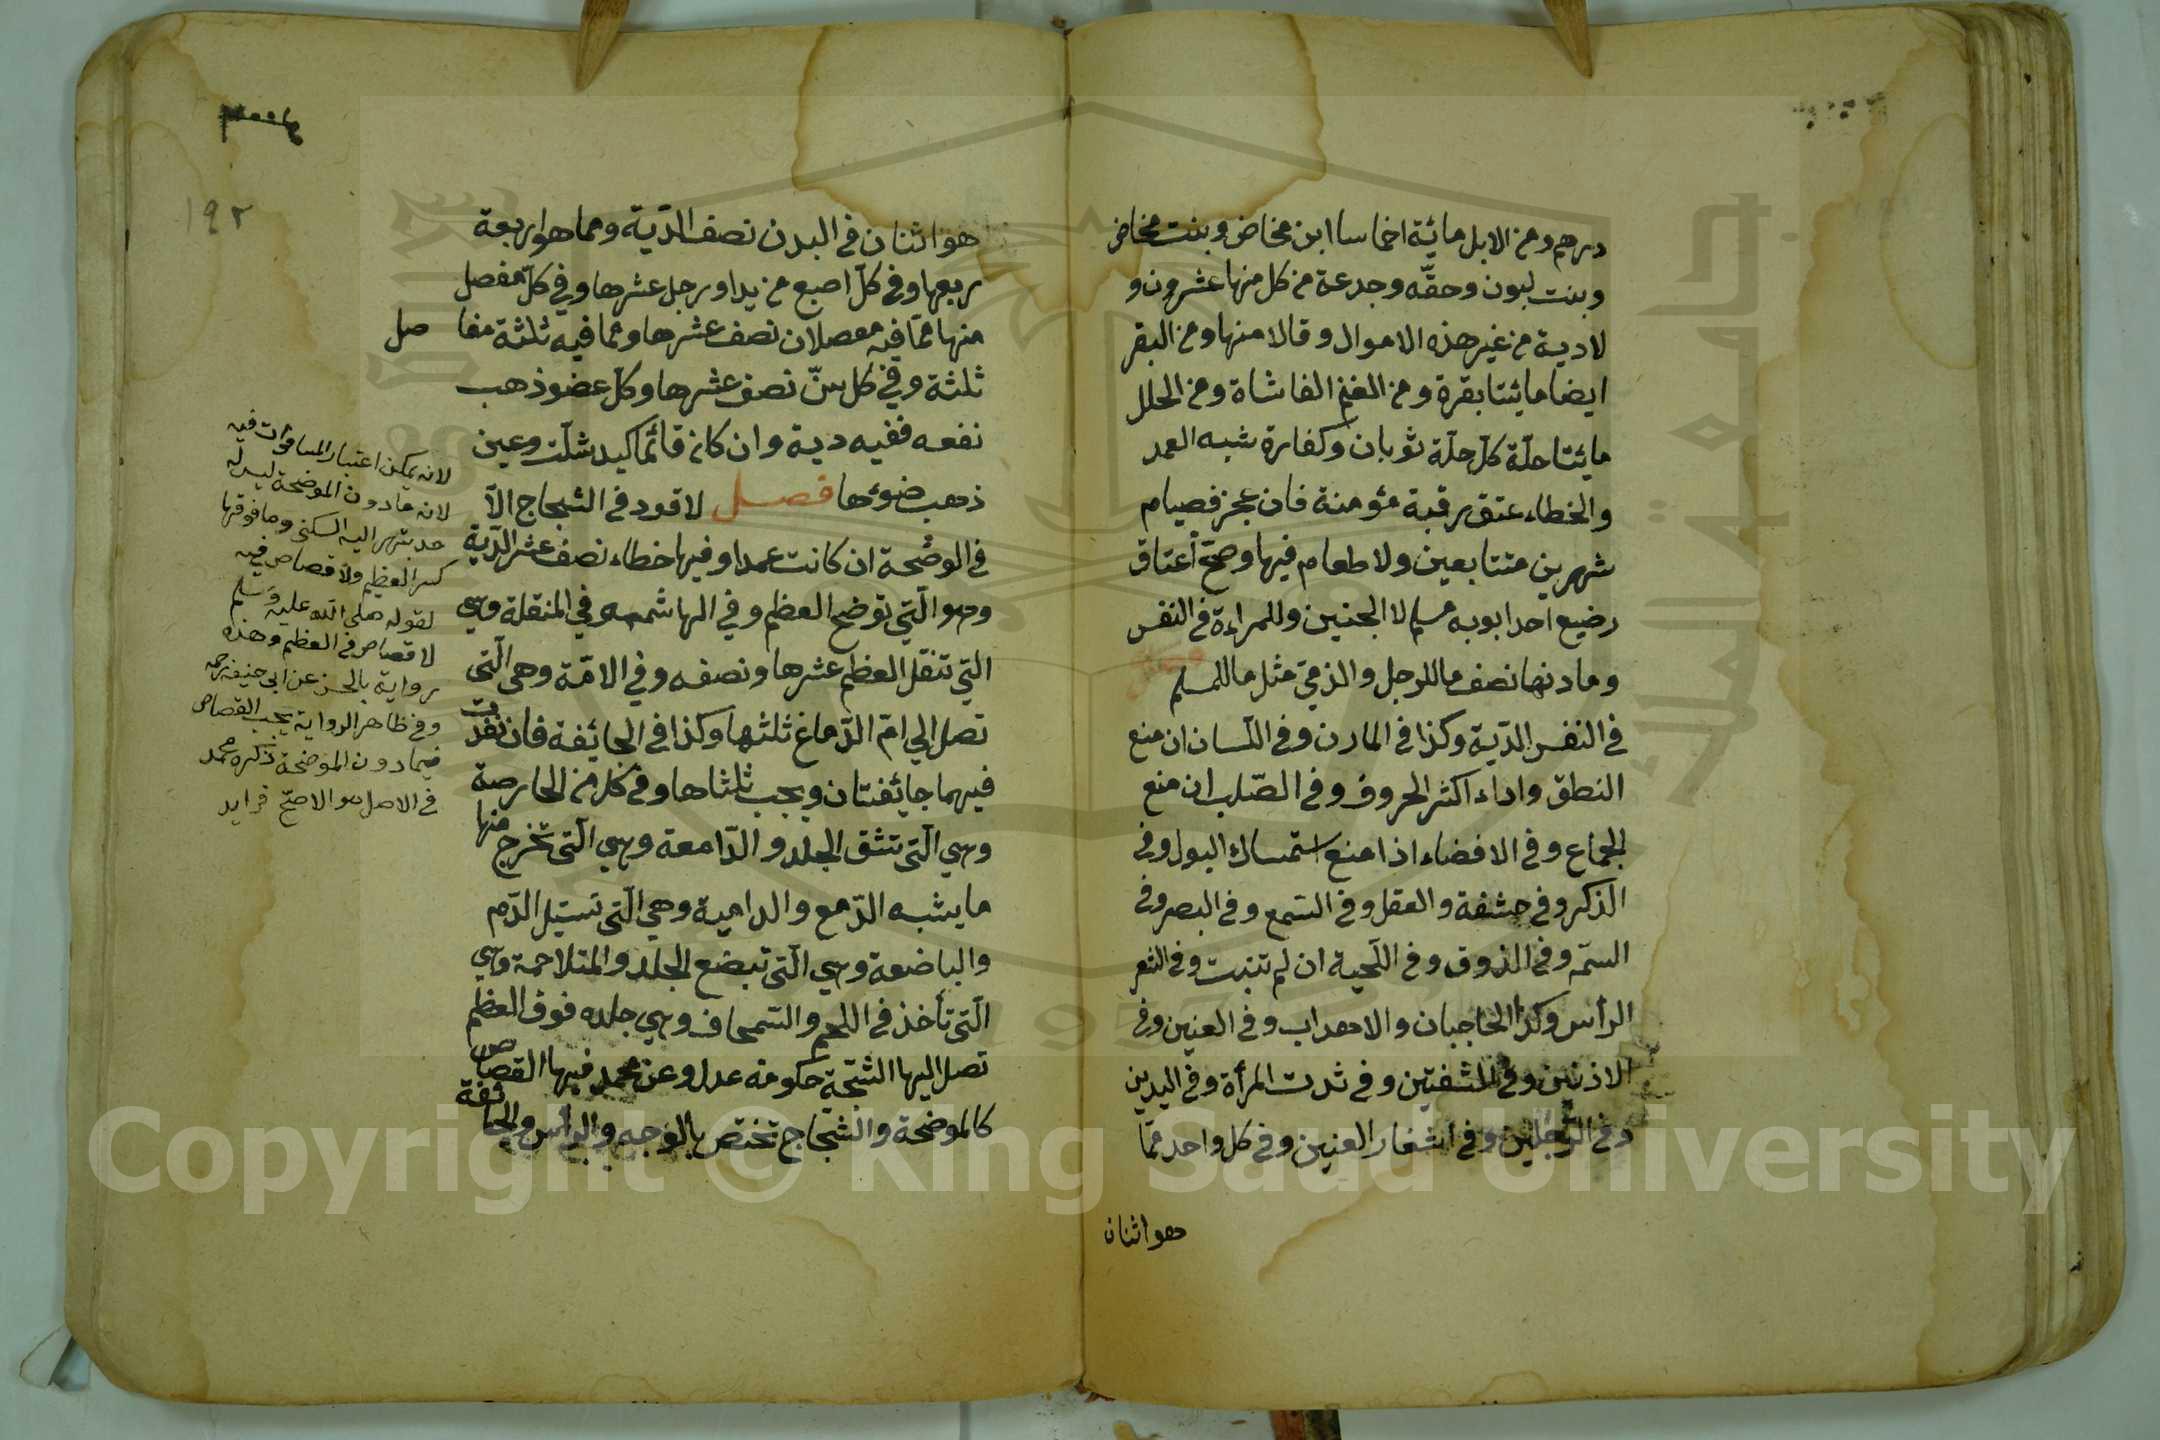 درهم ومن الابل مائة اخماسا ابن مخاض وبنت مخاض
وبنت لبون وحقّه وجدعة من كل منها عشرون و
لادية من غير هذه الاموال وقالا منها ومن البقر
ايضا مائيتا بقرة ومن الغنم الفا شاة ومن الحلل
مائتا حلّة كلّ حلّة ثوبان وكفارة شبه العمد
والخطاء عتق رقبة مؤمنة فان عجز فصيام
شهرين متتابعين ولا طعام فيها وصحّ أعتاق
رضيع احد ابويه مسلم لا الجنين وللمراءة في النفس
وما دنها نصف ما للرجل والذمي مثل ما للمسلم
فصل
في النفس الدّية وكذا في المارن وفي اللّسان ان منع
النطق واداء اكثر الحروف وفي الصّلب ان منع
الجماع وفي الافضاء اذا منع استمساك البول وفي
الذكر وفي حشفة والعقل وفي السّمع وفي البصر وفي
السّمّ وفي الذوق وفي اللّحية ان لم تنبت وفي الشعر
الرأس وكذا الحاجبان والاهداب وفي العينين وفي
الاذنين وفي الشفتين وفي ثدت المرأة وفي اليدين
وفي الرّجلين وفي اشفار العنين وفي كل واحد ممّا
هو اثنان
١٩٢
هو اثنان في البدن نصف الدّية ومما هو اربعة
ربعها وفي كلّ اصبع من يد او رجل عشرها وفي كلّ مفصل
منها ممّا فيه مفصلان نصف عشرها ومما فيه ثلثة مفا صل
ثلثة وفي كل سنّ نصف عشرها وكل عضو ذهب
نفعه ففيه دية وان كان قائما كيد شلّت وعين
ذهب ضوئها فصل لا قود في الشجاج الاّ
في الوضحة ان كانت عمدا وفيها خطاء نصف عشر الدّية
وهو الّتي توضح العظم وفي الهاشمه وفي المنقلة وهي
التي تنقل العظم عشرها ونصفه وفي الامّة وهي الّتي
تصل الي امّ الدّماغ ثلثها وكذا في الجائفة فان نفذت
فيهما جائفتان ويجب ثلثاها وفي كل من الحارصة
وهي الّتي تشق الجلد والدّامعة وهي الّتي تخرج منها
ما يشبه الدّمع والدامية وهي الّتي تسيل الدّم
والباضعة وهي الّتي تبضع الجلد والمتلاحمة وهي
الّتي تأخذ في اللحم والسّمحاف وهي جلده فوق العظم
تصل اليها الشجّة حكومة عدل وعن محمد فيها القصاص
كالموضحة والشجاج تختص بالوجه والرأس والجائفة
لانه يمكن اعتبار المساوات فيه
لانه ما دون الموضحة ليس له
حد ينتهي اليه السكين وما فوقها
كسر العظم ولا قصاص فيه
لقوله صلى الله عليه وسلم
لا قصاص في العظم وهذه
رواية بالحسن عن ابي حنيفه رحمه
وفي ظاهر الرواية يجب القصاص
فيما دون الموضحة ذكره محمد
في الاصل هو الاصحّ فرايد
Copyright © King Saud University